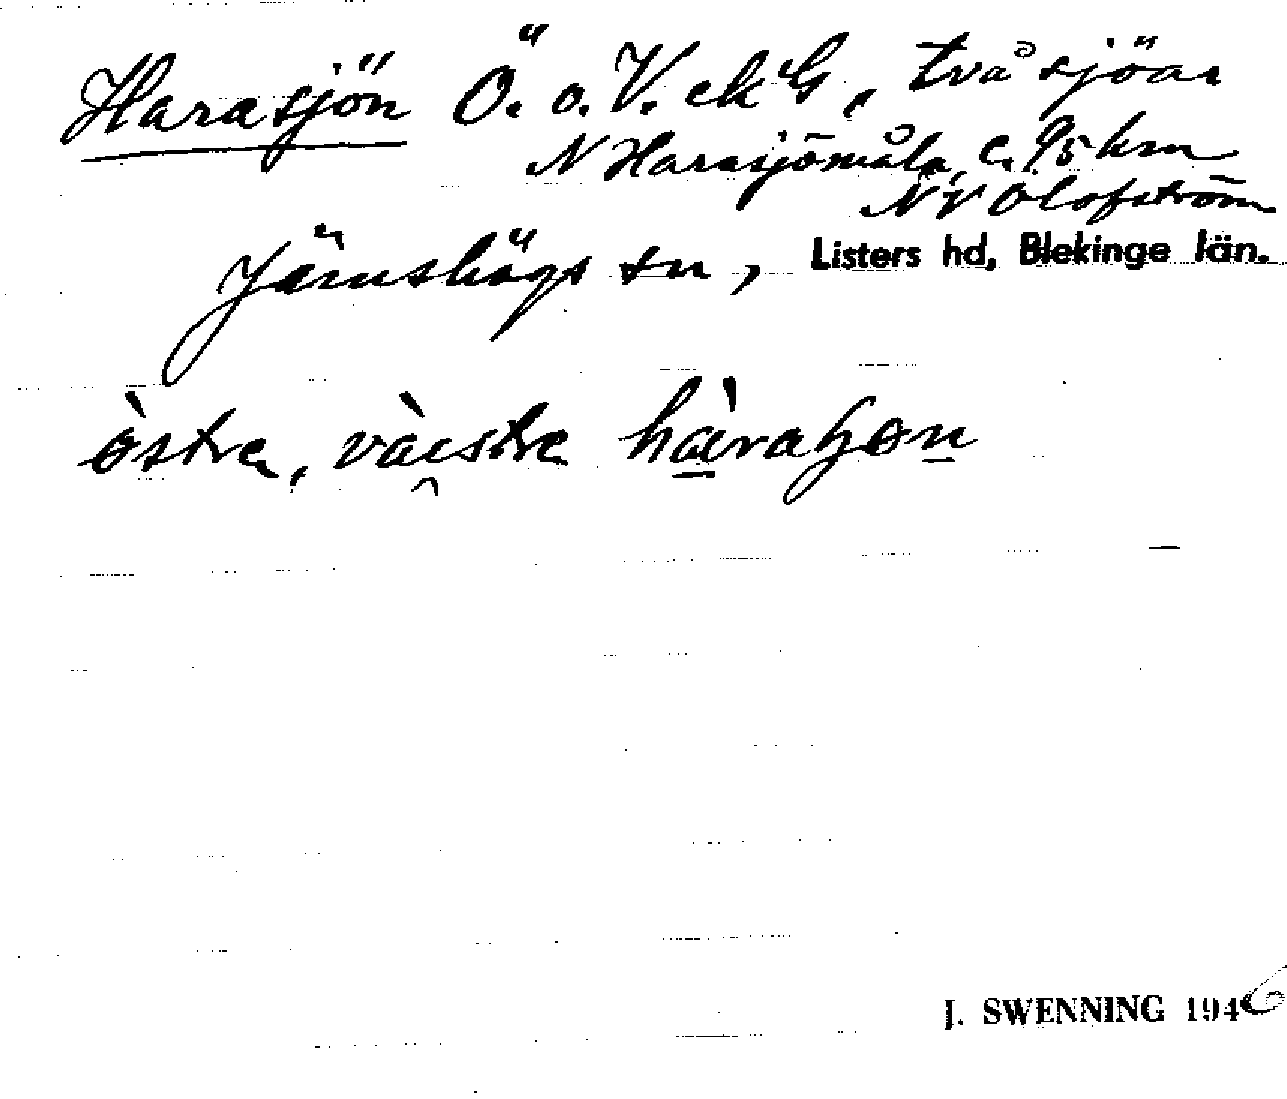 Harasjön Ö. o. V. ek G, två sjöar
N Harasjömåla, c. 9,5 km
NV Olofström
Jämshögs sn, Listers hd, Blekinge län.
J. SWENNING 1946